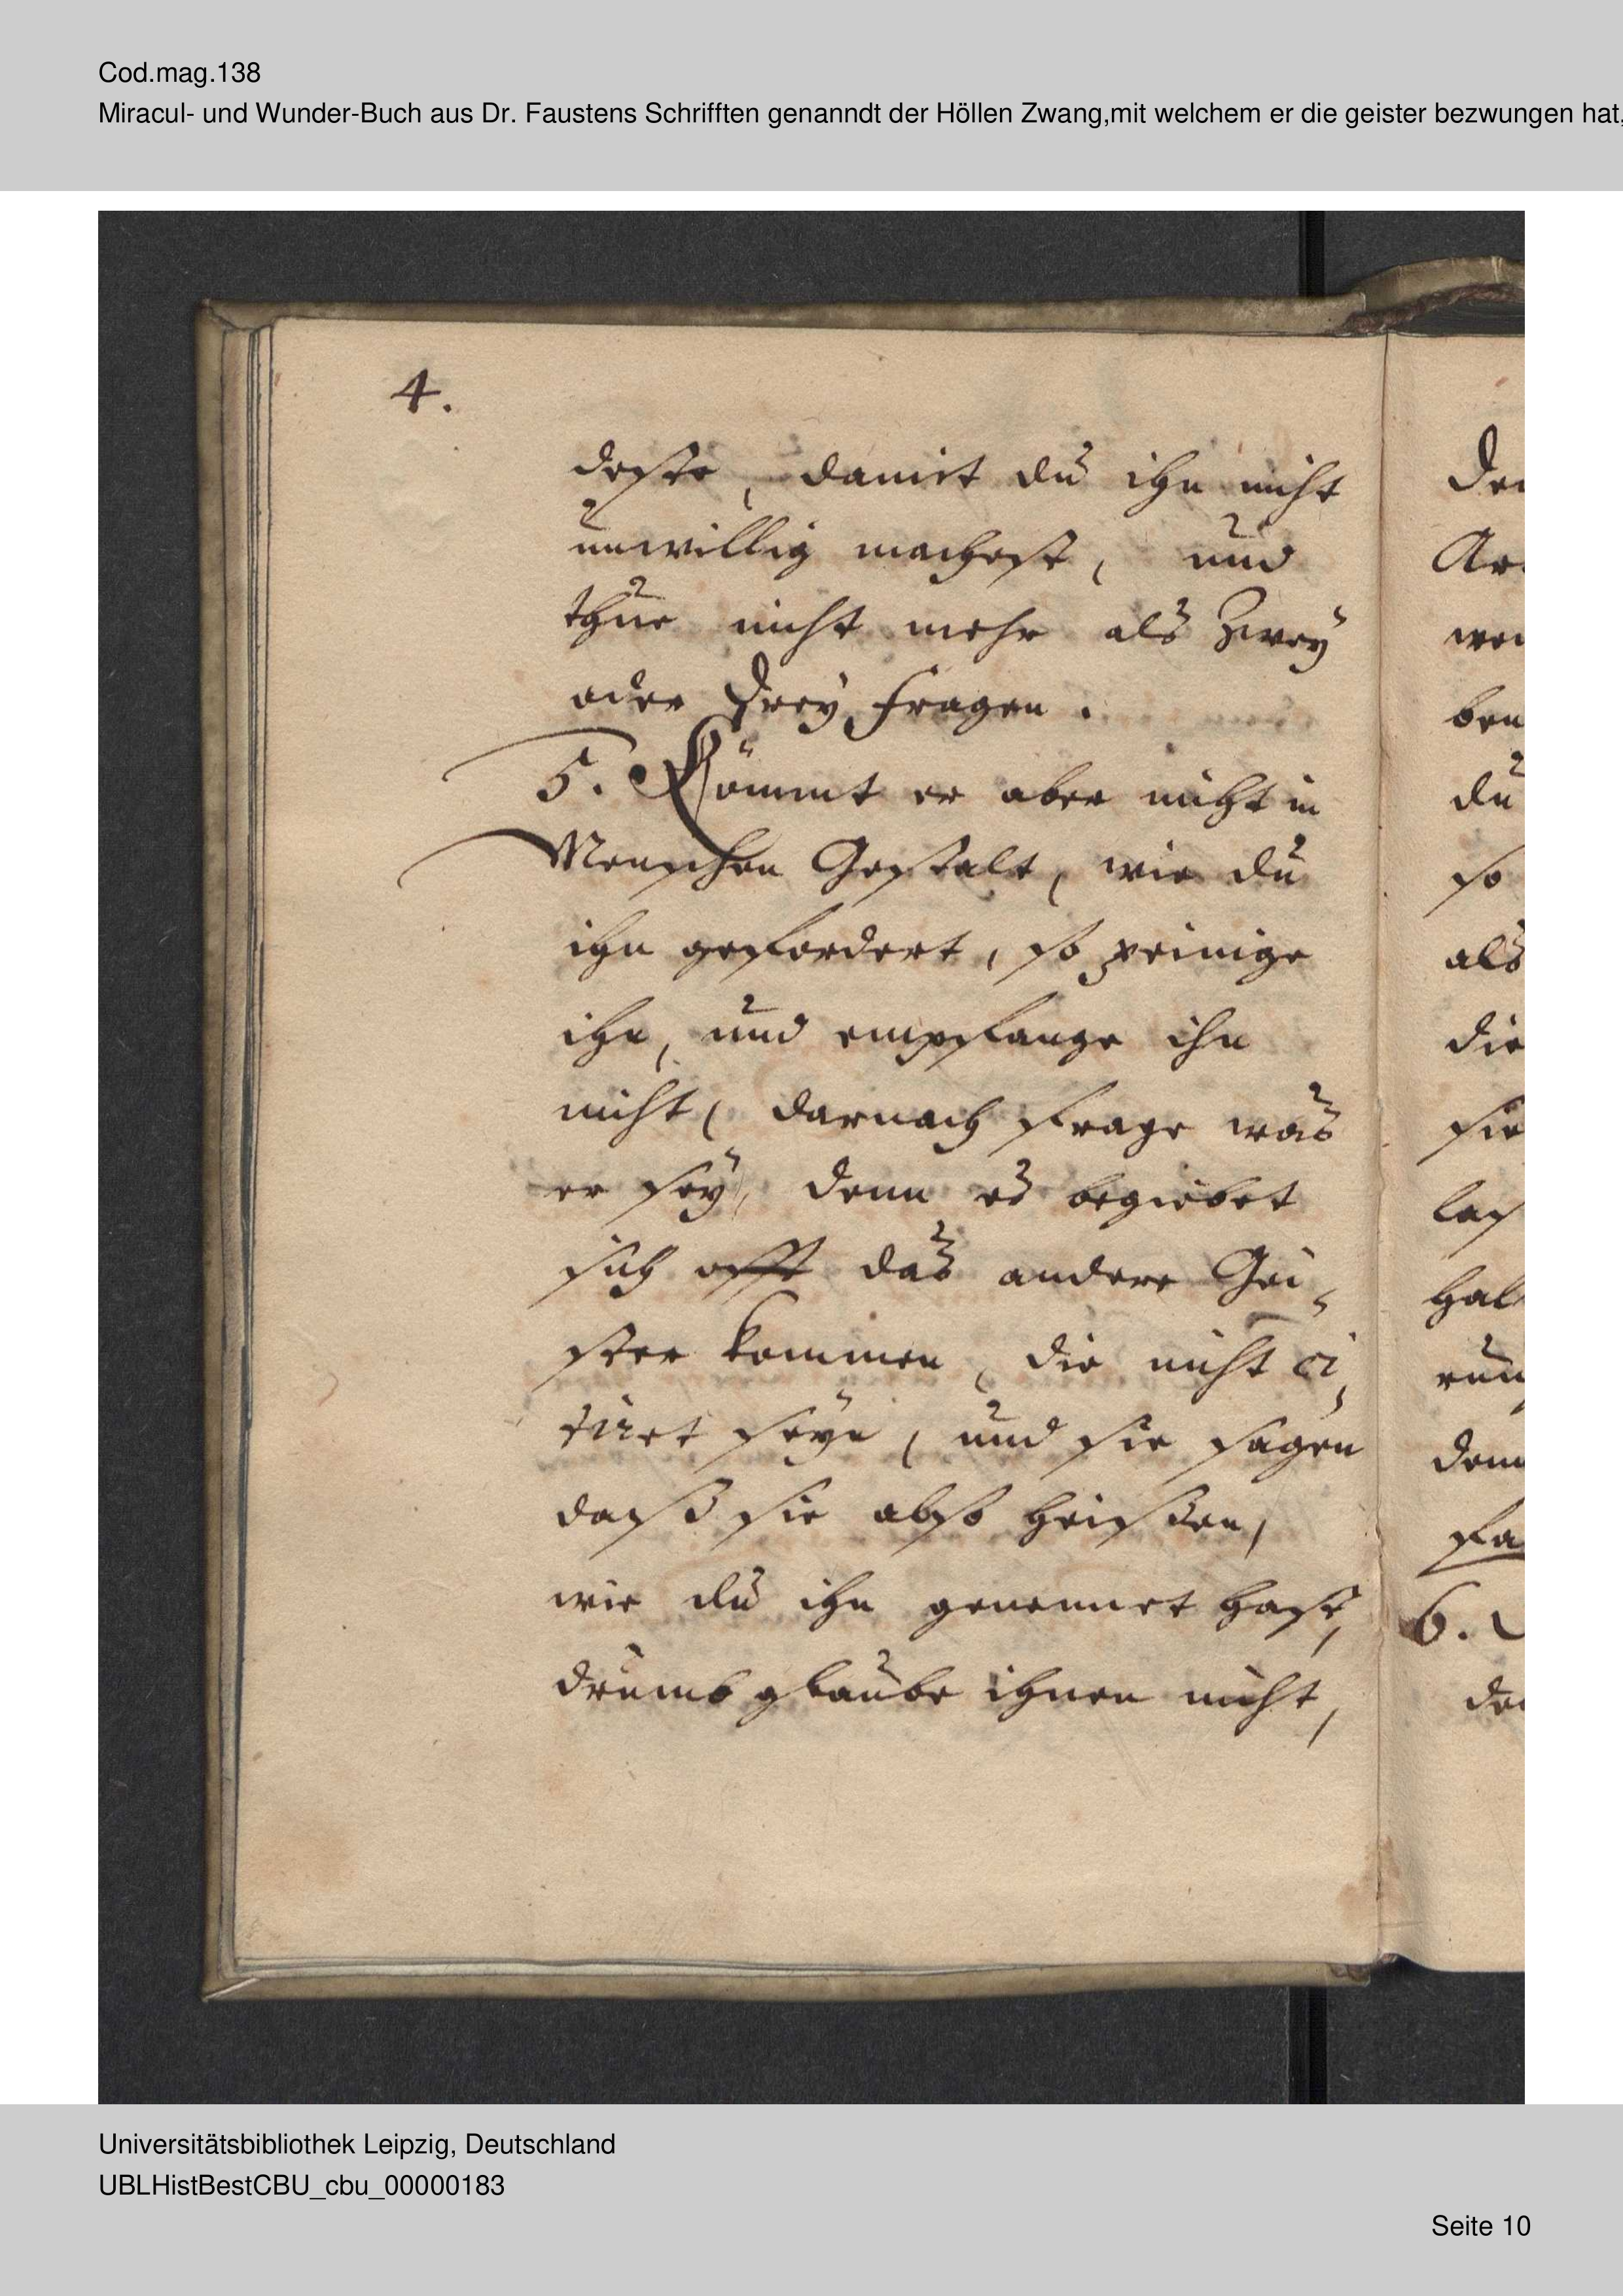 Cod.mag.138
Miracul- und Wunder-Buch aus Dr. Faustens Schrifften genanndt der Höllen Zwang,mit welchem er die geister bezwungen hat,
4.
deste, damit du ihn nicht
unwillig machest, und
thue nicht mehr als Zwey
oder Drey Fragen.
5. Kömmt er aber nicht in
Menschen Gestalt, wie du
ihn gefordert, so peinige
ihn, und empfange ihn
nicht, darnach frage was
er sey, denn es begiebet
sich offt das andere Gei-
ster kommen, die nicht ci-
tiret seyn, und sie sagen
daß sie also heißen,
wie du ihn genennet hast,
drumb glaube ihnen nicht,
du
so
als
die
sie
6.
Universitätsbibliothek Leipzig, Deutschland
UBLHistBestCBU_cbu_00000183
Seite 10